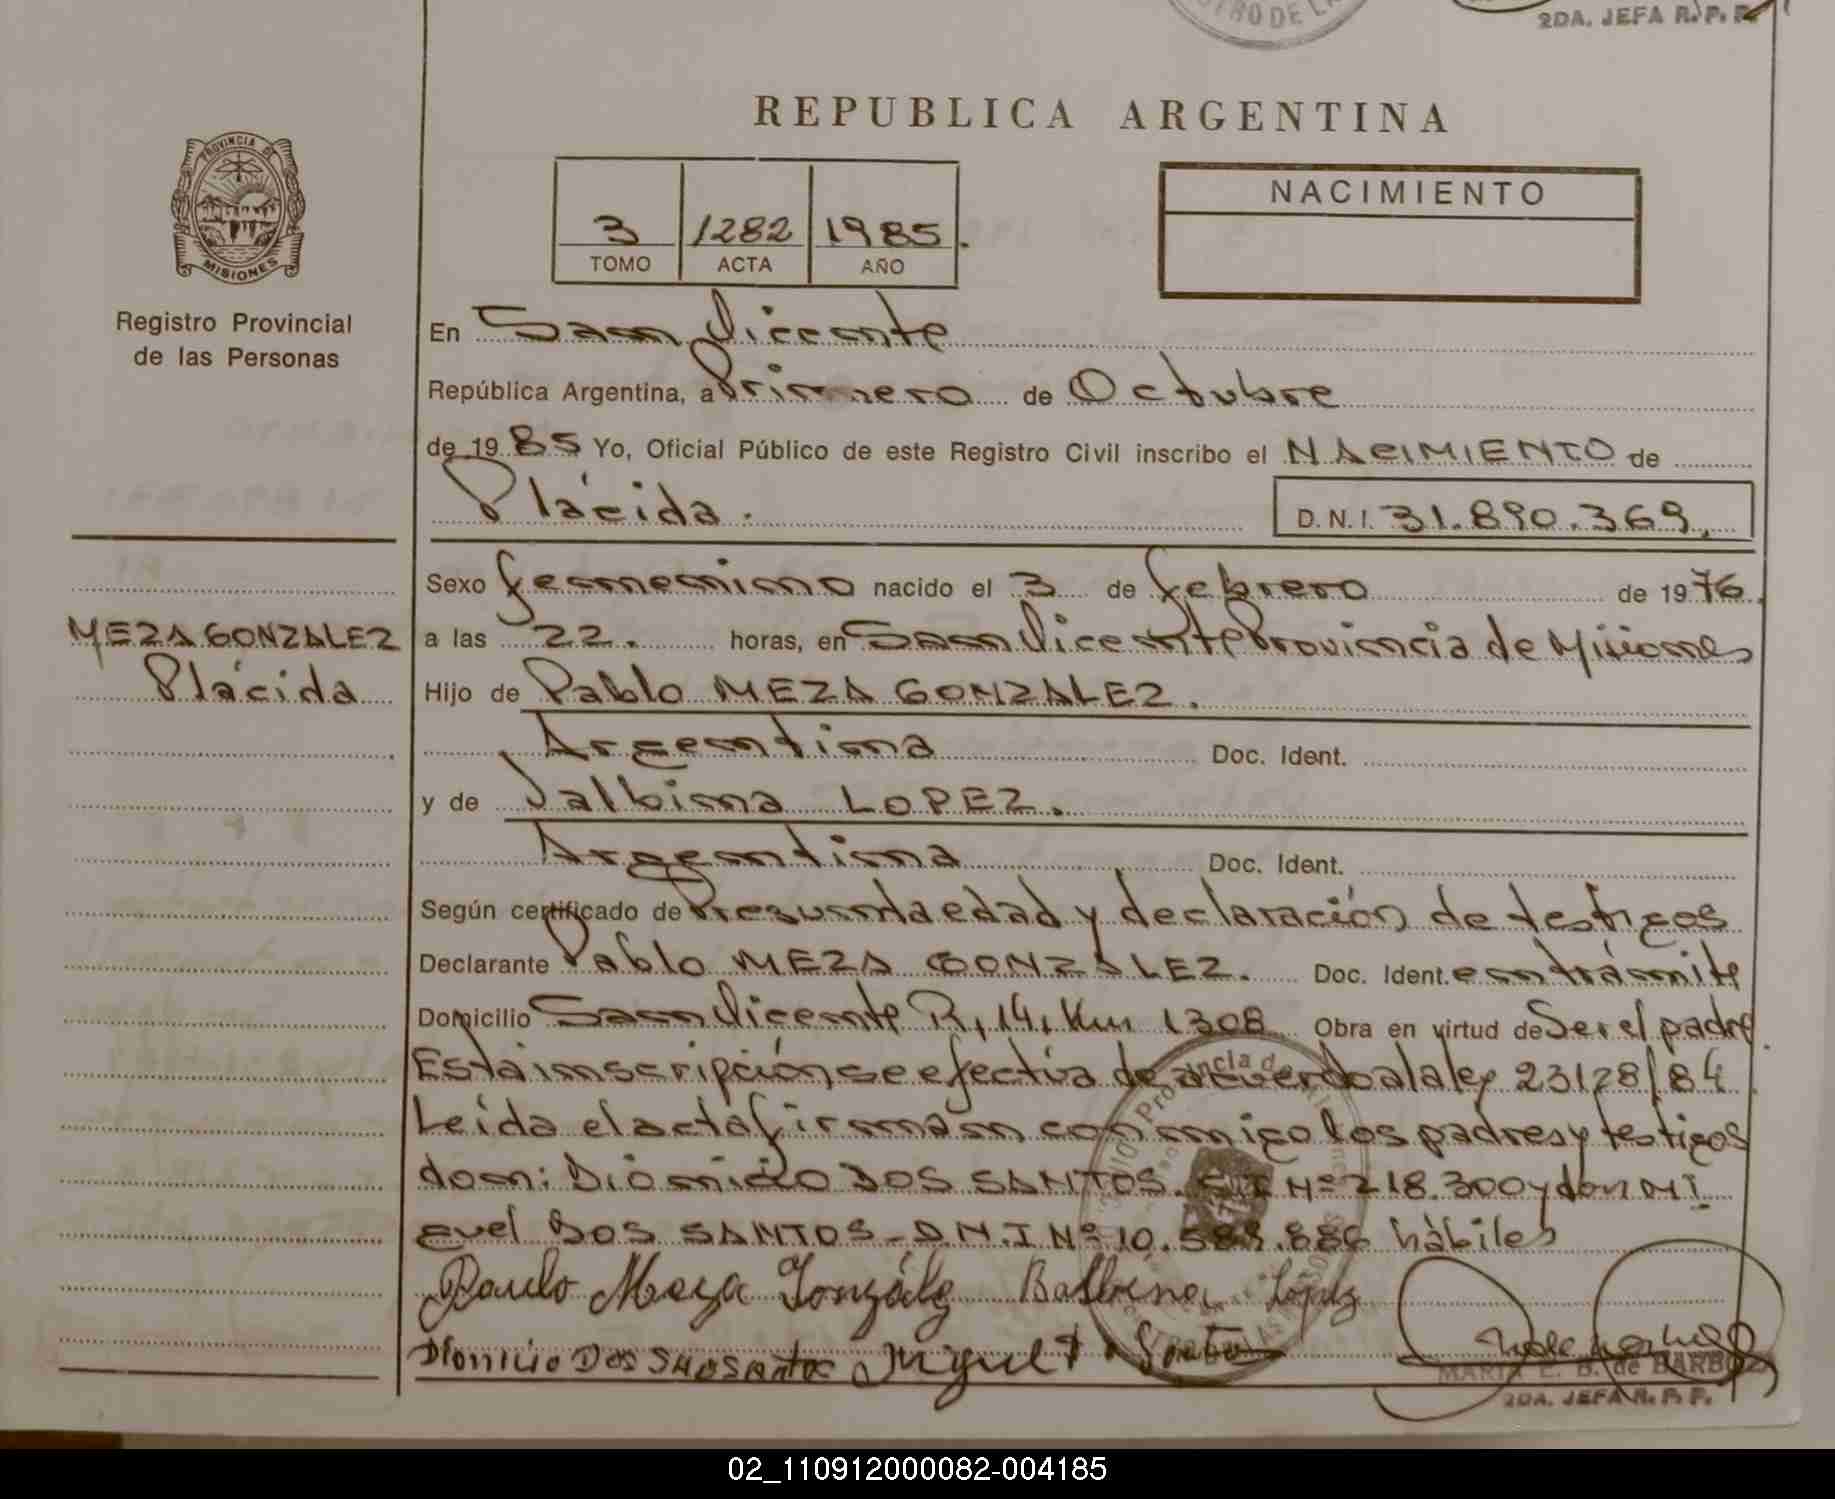 STRO DE LA
2DA. JEFA R. P. P.
REPUBLICA ARGENTINA
PROVINCIA DE
MISIONES
Registro Provincial
de las Personas
3 1282 1985.
TOMO ACTA AÑO
NACIMIENTO
En San Vicente
República Argentina, a Primero de Octubre
de 1985 Yo, Oficial Público de este Registro Civil inscribo el NACIMIENTO de
Plácida.
D.N.I. 31.890.369,
Sexo femenino nacido el 3 de febrero de 1976.
MEZA GONZALEZ
Plácida
a las 22. horas, en San Vicente Provincia de Misiones
Hijo de Pablo MEZA GONZALEZ.
Argentina Doc. Ident.
y de Valbina LOPEZ.
Argentina Doc. Ident.
Según certificado de Presunta edad y declaración de testigos
Declarante Pablo MEZA GONZALEZ. Doc. Ident. en trámite
Domicilio San Vicente R, 14, Km 1308 Obra en virtud de Ser el padre
Esta inscripción se efectúa de acuerdo a la ley 23128/84
Leída el acta firman conmigo los padres y testigos
don: Dionicio DOS SANTOS. Nº 218.300 y don MI
guel DOS SANTOS - D.N.I Nº 10.589.886 hàbiles
Paulo Meza Gonzáles Balbina Lopez
Dionicio Dos Miguel
MARIA E. B. de BARBOZA
2DA. JEFA R. P. P.
02_110912000082-004185